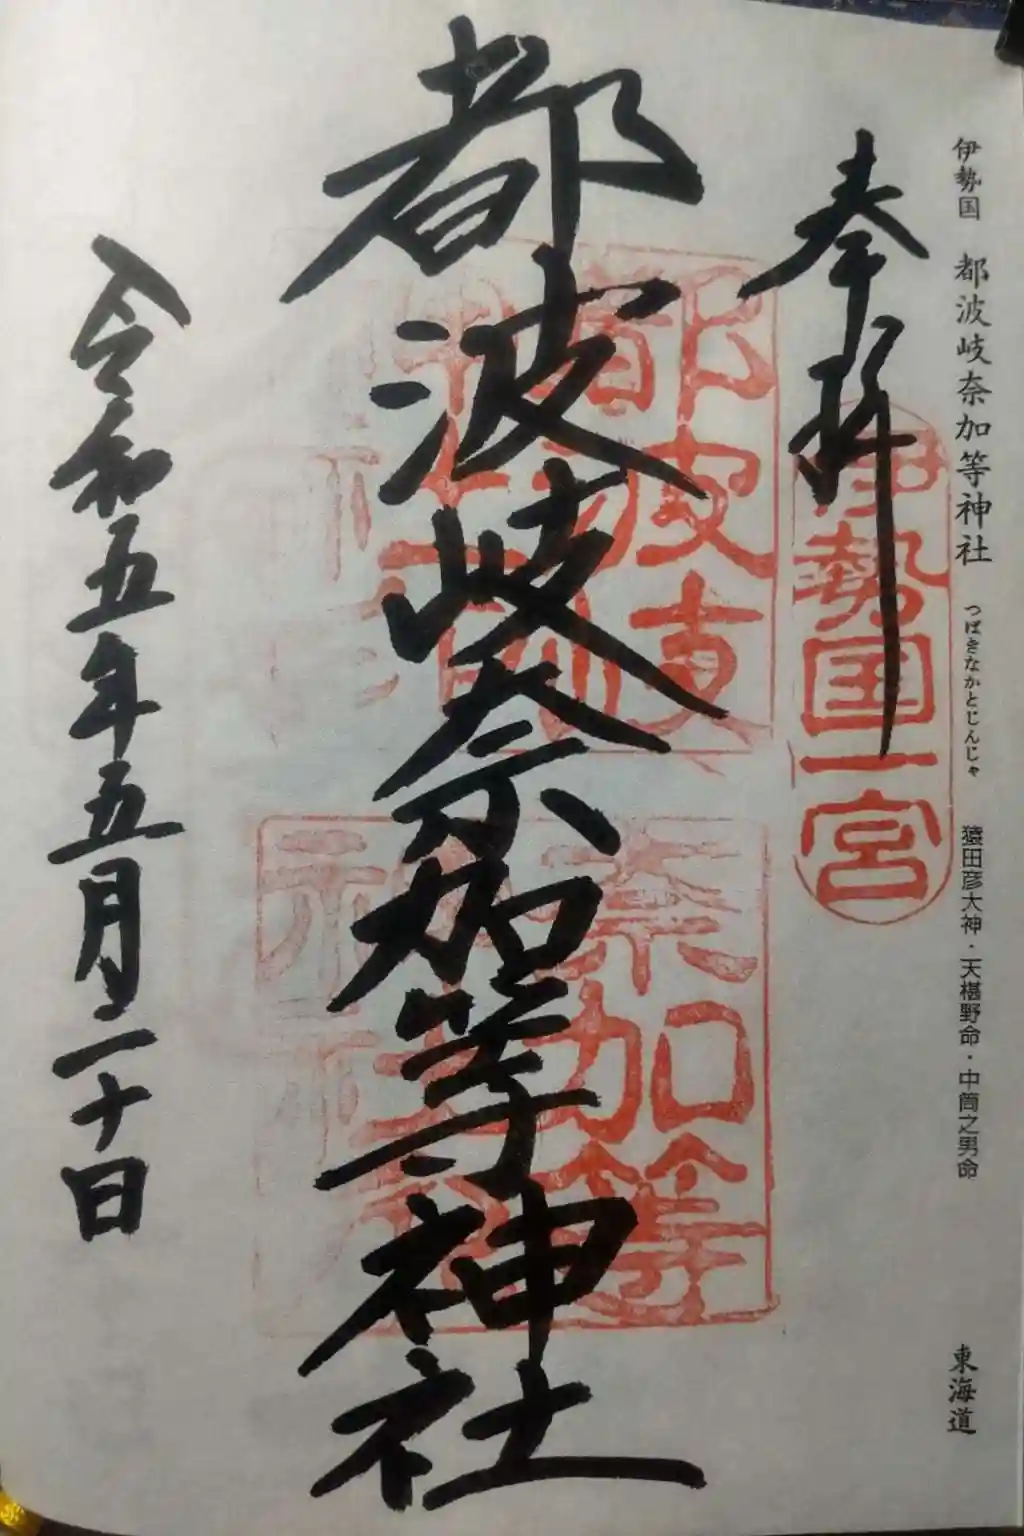 伊勢国 都波岐奈加等神社 つばきなかとじんじゃ 猿田彦大神・天椹野命・中筒之男命 東海道
奉拝
伊勢国一宮
都波岐奈加等神社
奈加等
令和五年五月二十日